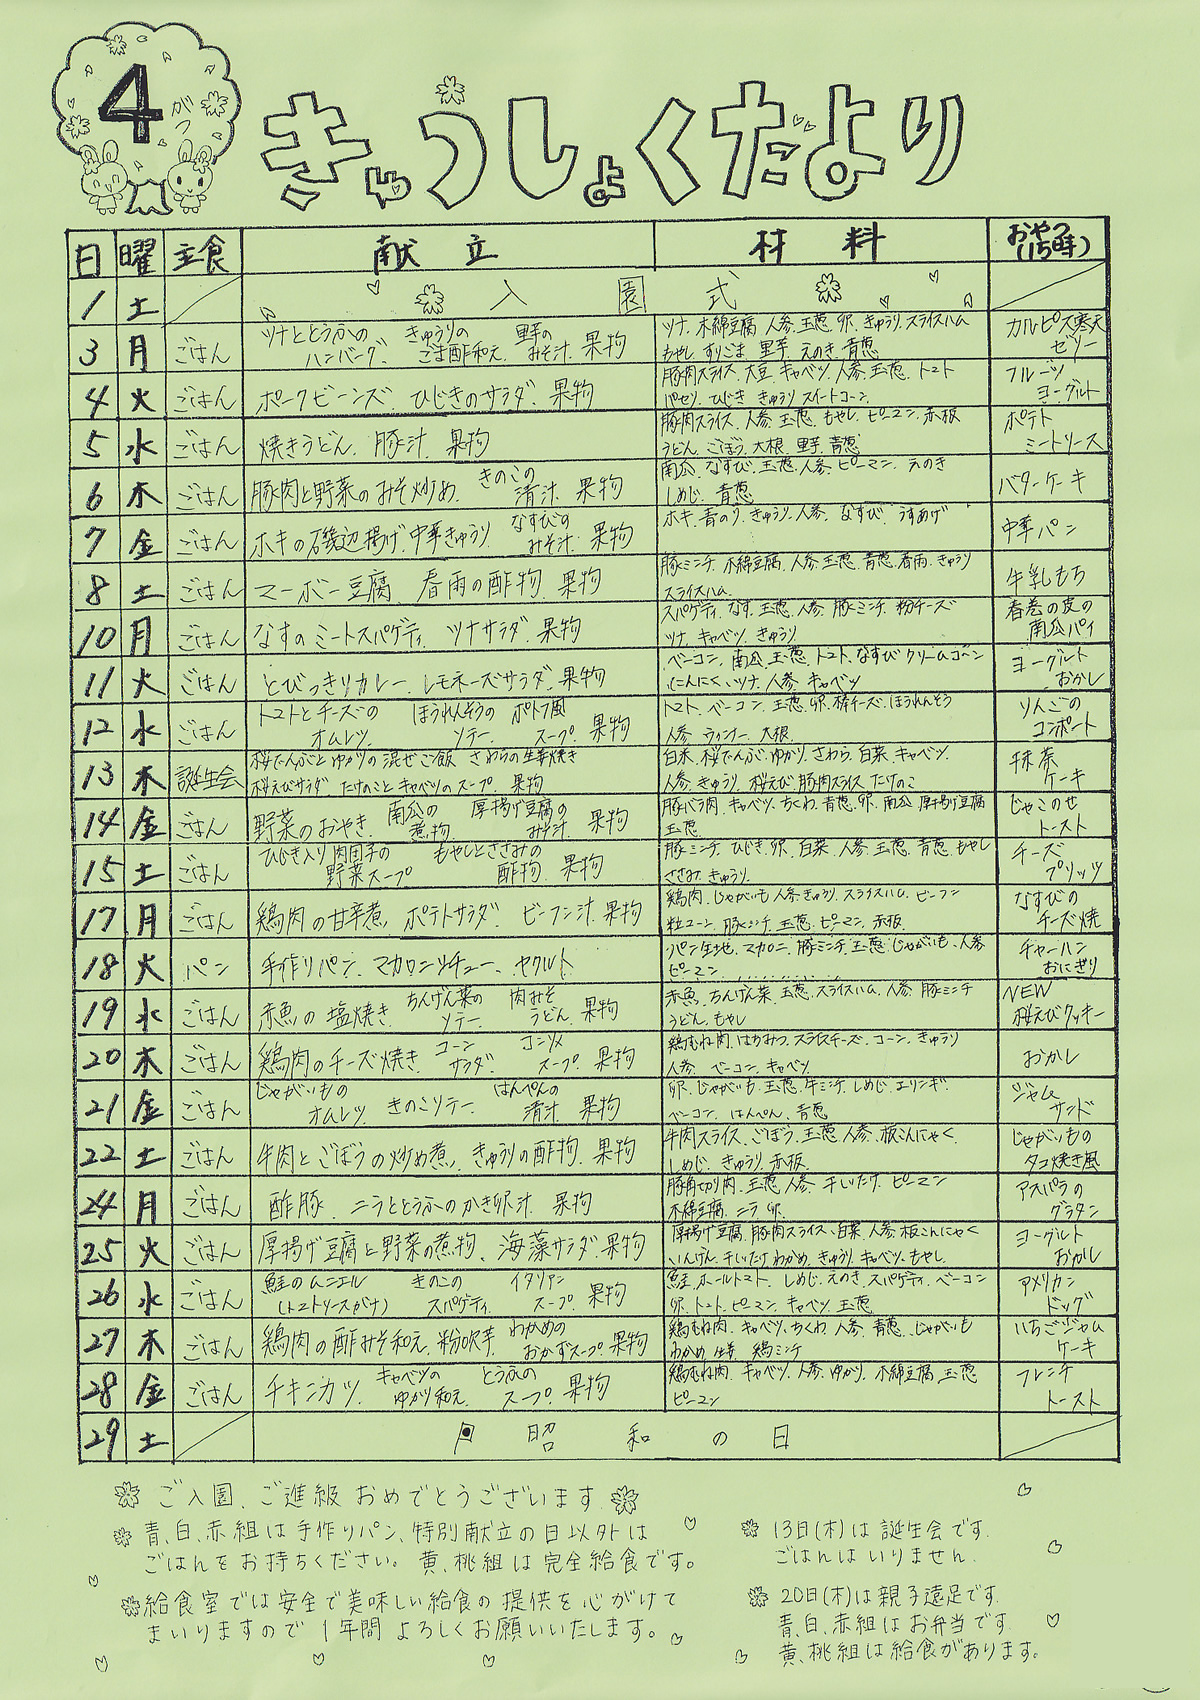 4がつ
きゅうしょくだより
日 曜 主食 献立 材料 おやつ(15時)
1 土 入園式
3 月 ごはん ツナととうふのハンバーグ、きゅうりのごま酢和え、里芋のみそ汁、果物 ツナ、木綿豆腐、人参、玉葱、卵、きゅうり、スライスハム カルピス寒天ゼリー
もやし、すりごま、里芋、えのき、青葱
4 火 ごはん ポークビーンズ、ひじきのサラダ、果物 豚肉スライス、大豆、キャベツ、人参、玉葱、トマト フルーツヨーグルト
パセリ、ひじき、きゅうり、スイートコーン
5 水 ごはん 焼きうどん、豚汁、果物 豚肉スライス、人参、玉葱、もやし、ピーマン、赤板 ポテトミートソース
うどん、ごぼう、大根、里芋、青葱
6 木 ごはん 豚肉と野菜のみそ炒め、きのこの清汁、果物 南瓜、なすび、玉葱、人参、ピーマン、えのき バターケーキ
しめじ、青葱
7 金 ごはん ホキの磯辺揚げ、中華きゅうり、なすびのみそ汁、果物 ホキ、青のり、きゅうり、人参、なすび、うすあげ 中華パン
8 土 ごはん マーボー豆腐、春雨の酢物、果物 豚ミンチ、木綿豆腐、人参、玉葱、青葱、春雨、きゅうり 牛乳もち
スライスハム
10 月 ごはん なすのミートスパゲティ、ツナサラダ、果物 スパゲティ、なす、玉葱、人参、豚ミンチ、粉チーズ 春巻の皮の南瓜パイ
ツナ、キャベツ、きゅうり
11 火 ごはん とびっきりカレー、レモネーズサラダ、果物 ベーコン、南瓜、玉葱、トマト、なすび、クリームコーン ヨーグルトおかし
にんにく、ツナ、人参、キャベツ
12 水 ごはん トマトとチーズのオムレツ、ほうれんそうのソテー、ポトフ風スープ、果物 トマト、ベーコン、玉葱、卵、棒チーズ、ほうれんそう りんごのコンポート
人参、ウィンナー、大根
13 木 誕生会 桜でんぶとゆかりの混ぜご飯 さわらの生姜焼き 白米、桜でんぶ、ゆかり、さわら、白菜、キャベツ、 抹茶ケーキ
桜えびサラダ たけのことキャベツのスープ、果物 人参、きゅうり、桜えび、豚肉スライス、たけのこ
14 金 ごはん 野菜のおやき、南瓜の煮物、厚揚げ豆腐のみそ汁、果物 豚バラ肉、キャベツ、ちくわ、青葱、卵、南瓜、厚揚げ豆腐 じゃこのせトースト
玉葱
15 土 ごはん ひじき入り肉団子の野菜スープ もやしとささみの酢物、果物 豚ミンチ、ひじき、卵、白菜、人参、玉葱、青葱、もやし チーズプリッツ
ささみ、きゅうり
17 月 ごはん 鶏肉の甘辛煮、ポテトサラダ、ビーフン汁、果物 鶏肉、じゃがいも、人参、きゅうり、スライスハム、ビーフン なすびのチーズ焼
粒コーン、豚ミンチ、玉葱、ピーマン、赤板
18 火 パン 手作りパン、マカロニシチュー、ヤクルト パン生地、マカロニ、豚ミンチ、玉葱、じゃがいも、人参 チャーハンおにぎり
ピーマン
19 水 ごはん 赤魚の塩焼き、ちんげん菜のソテー、肉みそうどん、果物 赤魚、ちんげん菜、玉葱、スライスハム、人参、豚ミンチ NEW桜えびクッキー
うどん、もやし
20 木 ごはん 鶏肉のチーズ焼き、コーンサラダ、コンソメスープ、果物 鶏むね肉、はちみつ、スライスチーズ、コーン、きゅうり おかし
人参、ベーコン、キャベツ
21 金 ごはん じゃがいものオムレツ、きのこソテー、はんぺんの清汁、果物 卵、じゃがいも、玉葱、牛ミンチ、しめじ、エリンギ ジャムサンド
ベーコン、はんぺん、青葱
22 土 ごはん 牛肉とごぼうの炒め煮、きゅうりの酢物、果物 牛肉スライス、ごぼう、玉葱、人参、板こんにゃく じゃがいものタコ焼き風
しめじ、きゅうり、赤板
24 月 ごはん 酢豚、ニラととうふのかき卵汁、果物 豚角切り肉、玉葱、人参、干しいたけ、ピーマン アスパラのグラタン
木綿豆腐、ニラ、卵
25 火 ごはん 厚揚げ豆腐と野菜の煮物、海藻サラダ、果物 厚揚げ豆腐、豚肉スライス、白菜、人参、板こんにゃく ヨーグルトおかし
いんげん、干しいたけ、わかめ、きゅうり、キャベツ、もやし
26 水 ごはん 鮭のムニエル(トマトソースがけ) きのこのスパゲティ、イタリアンスープ、果物 鮭、ホールトマト、しめじ、えのき、スパゲティ、ベーコン アメリカンドッグ
卵、トマト、ピーマン、キャベツ、玉葱
27 木 ごはん 鶏肉の酢みそ和え、粉吹芋、わかめのおかずスープ、果物 鶏むね肉、キャベツ、ちくわ、人参、青葱、じゃがいも いちごジャムケーキ
わかめ、生姜、鶏ミンチ
28 金 ごはん チキンカツ、キャベツのゆかり和え、とうふのスープ、果物 鶏むね肉、キャベツ、人参、ゆかり、木綿豆腐、玉葱 フレンチトースト
ピーマン
29 土 昭和の日
ご入園、ご進級 おめでとうございます
青、白、赤組は手作りパン、特別献立の日以外は
ごはんをお持ちください。黄、桃組は完全給食です。
給食室では安全で美味しい給食の提供を心がけて
まいりますので 1年間よろしくお願いいたします。
13日(木)は誕生会です。
ごはんはいりません。
20日(木)は親子遠足です。
青、白、赤組はお弁当です。
黄、桃組は給食があります。